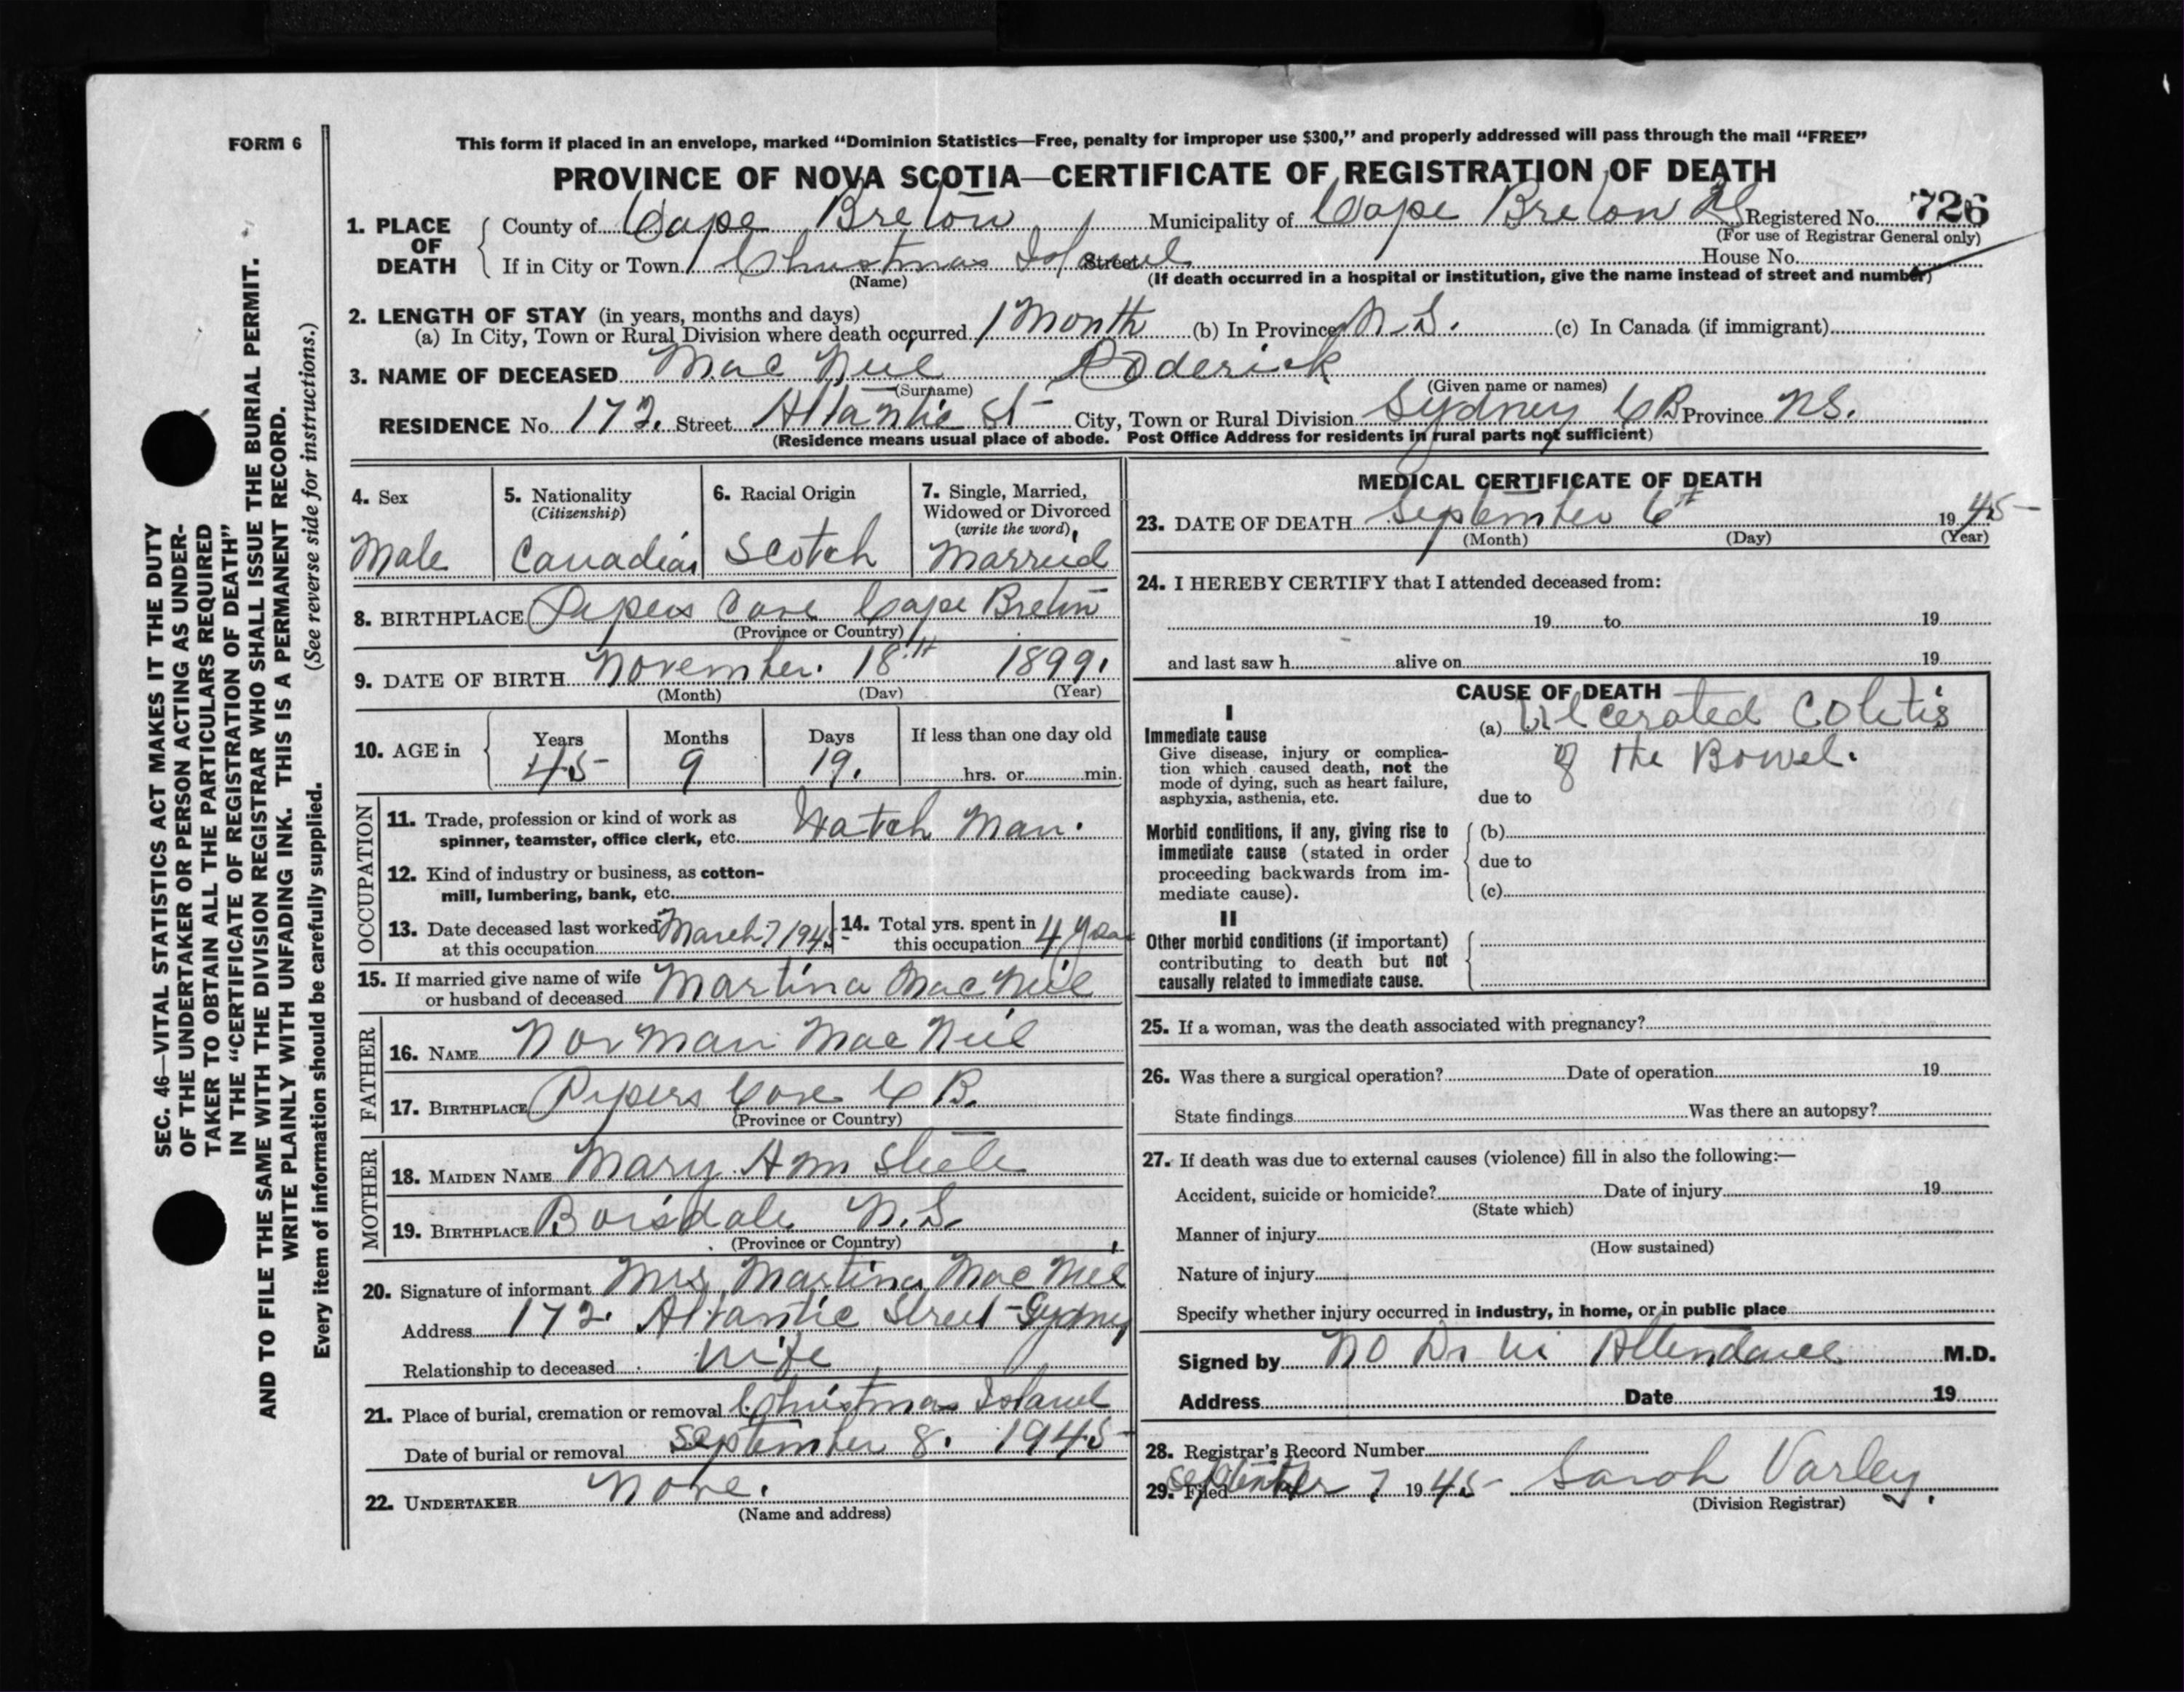 FORM 6
This form if placed in an envelope, marked “Dominion Statistics—Free, penalty for improper use $300,” and properly addressed will pass through the mail “FREE”
PROVINCE OF NOVA SCOTIA—CERTIFICATE OF REGISTRATION OF DEATH
1. PLACE OF DEATH
County of Cape Breton Municipality of Cape Breton Registered No. 726
(For use of Registrar General only)
If in City or Town Christmas Island Street House No.
(Name) (If death occurred in a hospital or institution, give the name instead of street and number)
2. LENGTH OF STAY (in years, months and days)
(a) In City, Town or Rural Division where death occurred 1 Month (b) In Province N.S. (c) In Canada (if immigrant)
3. NAME OF DECEASED Mac Neil Roderick
(Surname) (Given name or names)
RESIDENCE No. 172. Street Altantic St City, Town or Rural Division Sydney C B Province N.S.
(Residence means usual place of abode. Post Office Address for residents in rural parts not sufficient)
4. Sex
Male
5. Nationality
(Citizenship)
Canadian
6. Racial Origin
Scotch
7. Single, Married,
Widowed or Divorced
(write the word)
Married
8. BIRTHPLACE Pipers Cove Cape Breton
(Province or Country)
9. DATE OF BIRTH November. 18th 1899.
(Month) (Day) (Year)
10. AGE in
Years Months Days If less than one day old
45 9 19. hrs. or min.
OCCUPATION
11. Trade, profession or kind of work as
spinner, teamster, office clerk, etc. Watch Man.
12. Kind of industry or business, as cotton-
mill, lumbering, bank, etc.
13. Date deceased last worked
at this occupation March 7 1945
14. Total yrs. spent in
this occupation 4 years
15. If married give name of wife
or husband of deceased Martina MacNeil
FATHER
16. NAME Norman MacNeil
17. BIRTHPLACE Pipers Cove C B.
(Province or Country)
MOTHER
18. MAIDEN NAME Mary Ann Steele
19. BIRTHPLACE Boisdale N.S.
(Province or Country)
20. Signature of informant Mrs Martina MacNeil
Address 172. Altantic Street Sydney
Relationship to deceased Wife
21. Place of burial, cremation or removal Christmas Island
Date of burial or removal September 8. 1945
22. UNDERTAKER None.
(Name and address)
MEDICAL CERTIFICATE OF DEATH
23. DATE OF DEATH September 6th 1945
(Month) (Day) (Year)
24. I HEREBY CERTIFY that I attended deceased from:
19 to 19
and last saw h alive on 19
CAUSE OF DEATH
I
Immediate cause
Give disease, injury or complica-
tion which caused death, not the
mode of dying, such as heart failure,
asphyxia, asthenia, etc.
(a) Ulcerated Colitis
of the Bowel.
due to
Morbid conditions, if any, giving rise to
immediate cause (stated in order
proceeding backwards from im-
mediate cause).
(b)
due to
(c)
II
Other morbid conditions (if important)
contributing to death but not
causally related to immediate cause.
25. If a woman, was the death associated with pregnancy?
26. Was there a surgical operation? Date of operation 19
State findings Was there an autopsy?
27. If death was due to external causes (violence) fill in also the following:—
Accident, suicide or homicide? Date of injury 19
(State which)
Manner of injury
(How sustained)
Nature of injury
Specify whether injury occurred in industry, in home, or in public place
Signed by No Dr in Attendance M.D.
Address Date 19
28. Registrar's Record Number
29. Filed September 7 1945 Sarah Varley.
(Division Registrar)
SEC. 46—VITAL STATISTICS ACT MAKES IT THE DUTY
OF THE UNDERTAKER OR PERSON ACTING AS UNDER-
TAKER TO OBTAIN ALL THE PARTICULARS REQUIRED
IN THE “CERTIFICATE OF REGISTRATION OF DEATH”
AND TO FILE THE SAME WITH THE DIVISION REGISTRAR WHO SHALL ISSUE THE BURIAL PERMIT.
WRITE PLAINLY WITH UNFADING INK. THIS IS A PERMANENT RECORD.
Every item of information should be carefully supplied. (See reverse side for instructions.)